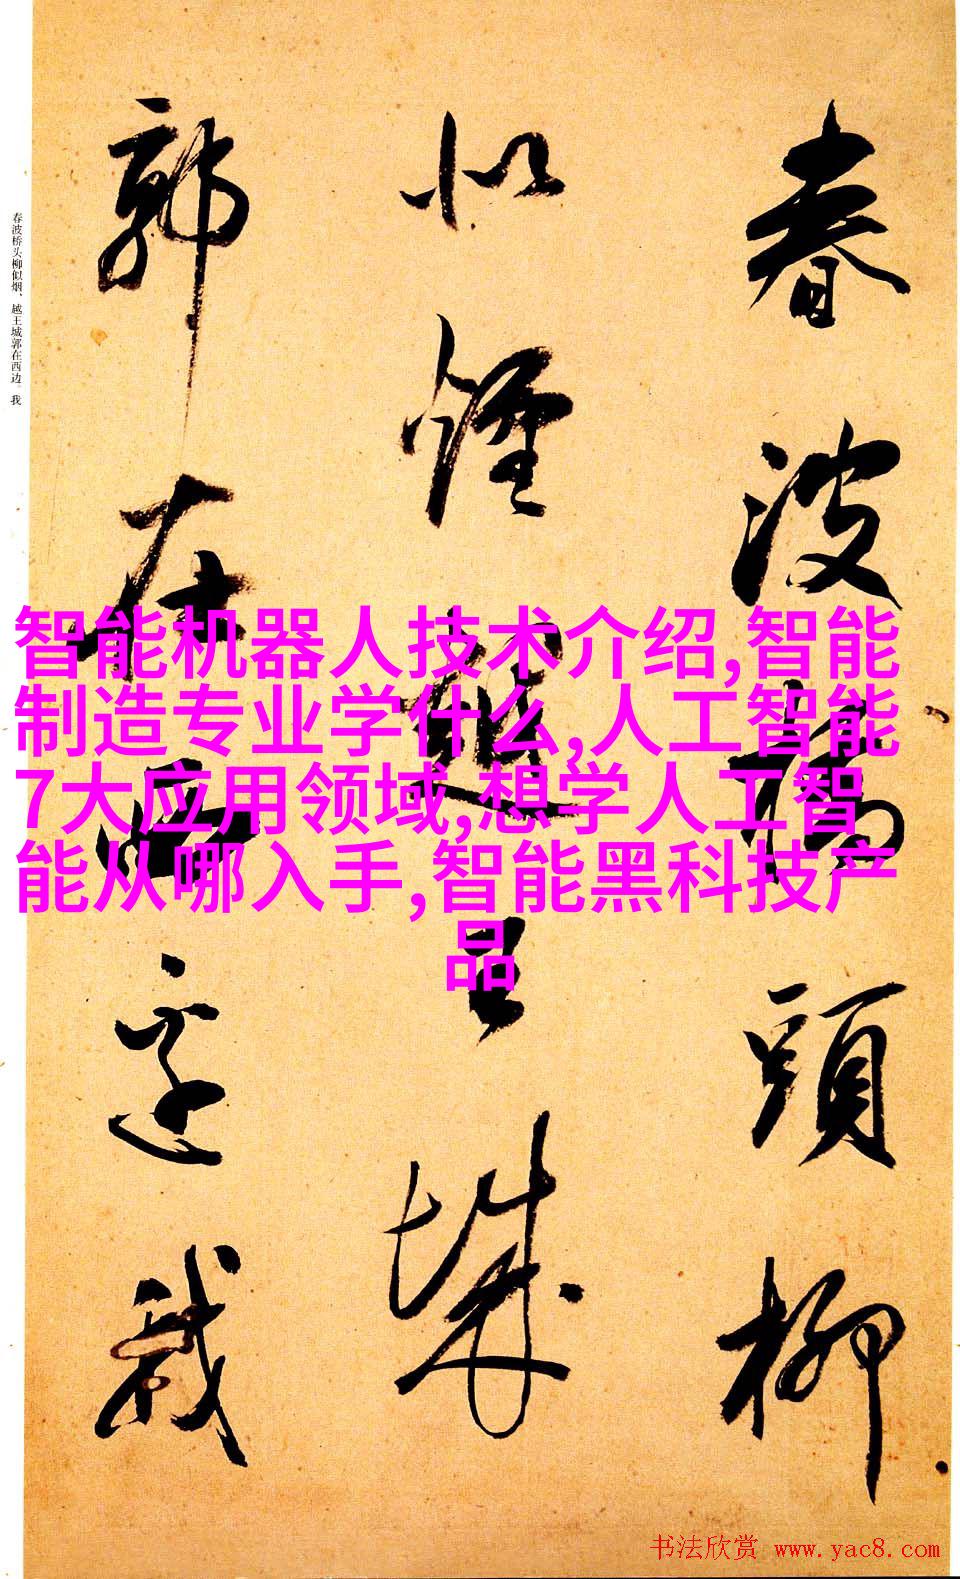 春波橋頭柳
似煙越王城
郭在西邊我
春波桥头柳似烟、越王城郭在西边。我
智能机器人技术介绍,智能
制造专业学什么,人工智能
7大应用领域,想学人工智
能从哪入手,智能黑科技产
品
书法欣赏 www.yac8.com